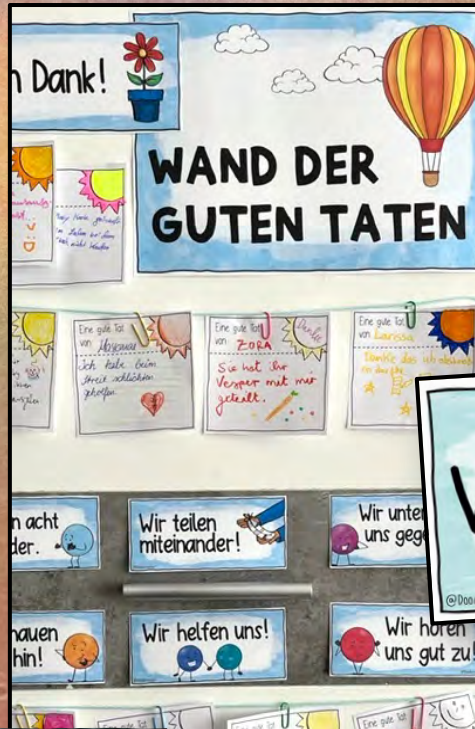 n Dank!
WAND DER
GUTEN TATEN
Eine gute Tat
von
Ich habe beim
Streit schlichten
geholfen.
Eine gute Tat
von ZORA
Danke
Sie hat Ihr
Vesper mit mir
geteilt.
Eine gute Tat
von Larissa
Danke das ich
n acht
der.
Wir teilen
miteinander!
Wir unter
uns geg
hauen
hin!
Wir helfen uns!
Wir hören
uns gut zu!
Eine gute Tat
Eine gute Tat